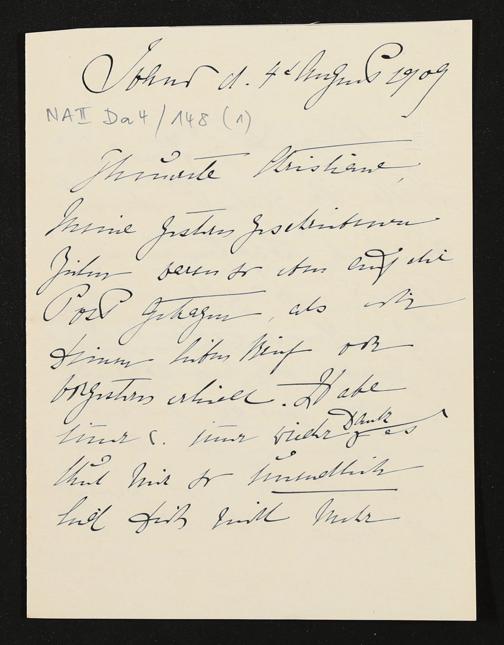 d. 4t August 1909
NA II Da 4 / 148 (1)
Christiane,
Meine gestern geschriebenen
Zeilen waren so eben auf die
Post getragen, als ich
Deinen lieben Brief von
vorgestern erhielt. Habe
immer u. immer wieder Dank es
thut mir so unendlich
leid Dich nicht mehr